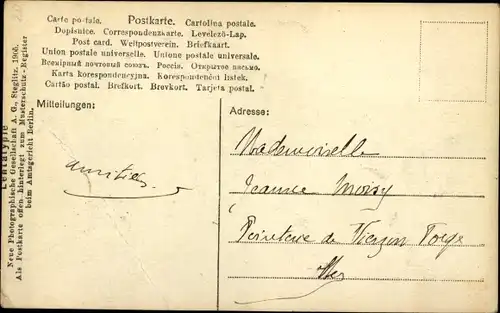 Carte postale. Postkarte. Cartolina postale.
Dopisnice. Correspondenzkarte. Levelező-Lap.
Post card. Weltpostverein. Briefkaart.
Union postale universelle. Unione postale universale.
Всемірный почтовый союзъ. Россія. Открытое письмо.
Karta korespondencyjna. Korespondenční lístek.
Cartão postal. Brefkort. Brevkort. Tarjeta postal.
Neue Photographische Gesellschaft A. G., Steglitz 190
Als Postkarte offen hinterlegt zum Musterschutz-Register
beim Amtsgericht Berlin.
Mitteilungen:
amitiés
Adresse:
Mademoiselle
Jeanne
de Vierzon Forge